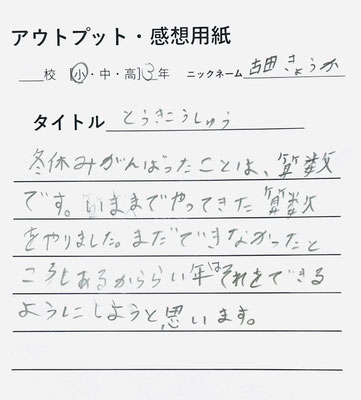 アウトプット・感想用紙
___校 [小・中・高] 3年 ニックネーム 古田きょうか
タイトル とうきこうしゅう
冬休みがんばったことは、算数
です。いままでやってきた算数
をやりました。まだできなかったと
ころもあるかららい年はそれをできる
ようにしようと思います。